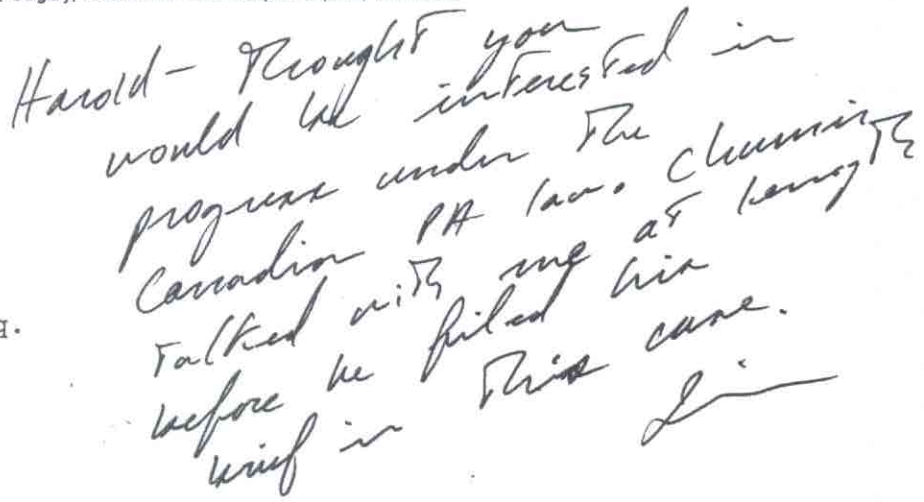 Harold - Thought you
would be interested in
progress under the
Canadian PA law. Chumir
talked with me at length
before he filed his
brief in this case.
Jim